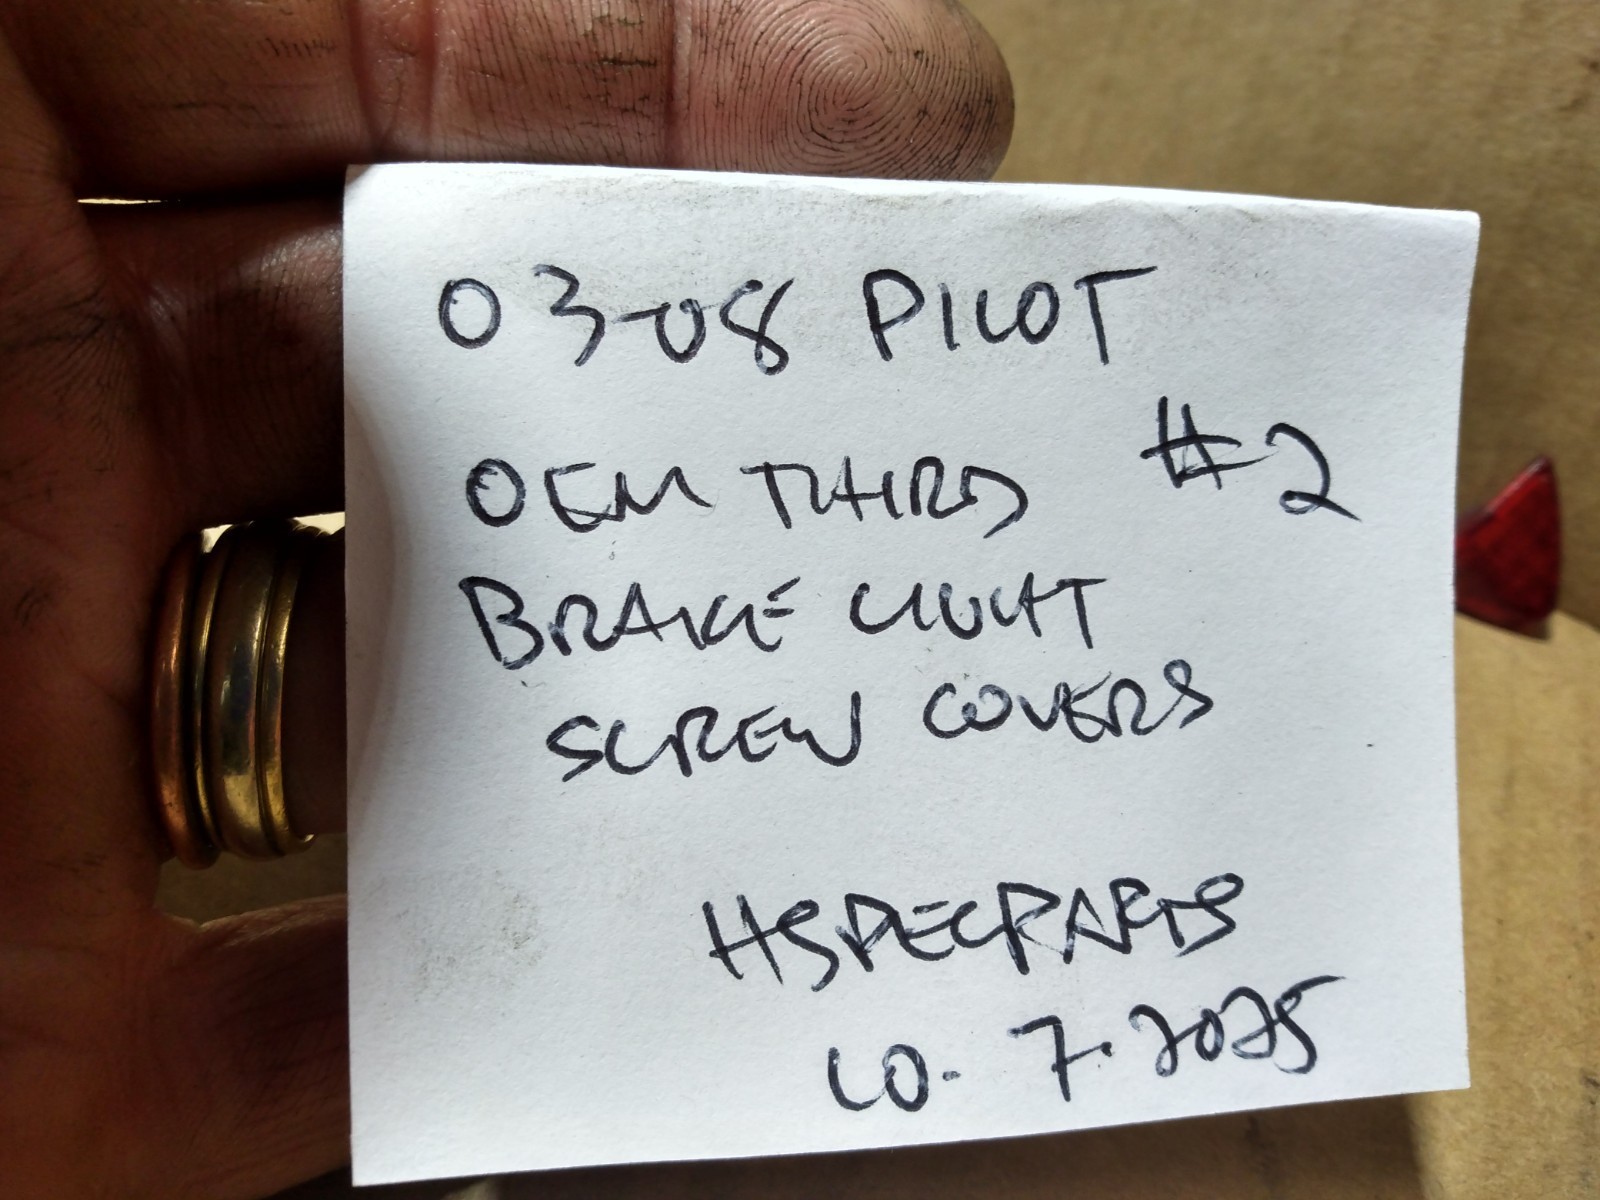 03-08 PILOT
#2
OEM THIRD
BRAKE LIGHT
SCREW COVERS
HSPECPARTS
10.7.2025